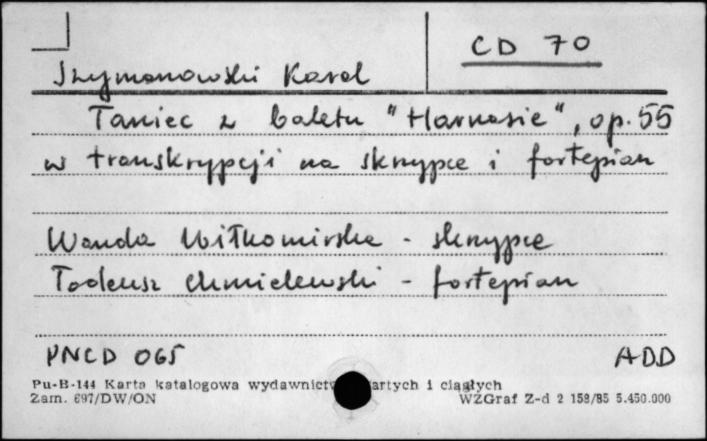 CD 70
Szymanowski Karol
Taniec z baletu "Harnasie", op. 55
w transkrypcji na skrzypce i fortepian
Wanda Wiłkomirska - skrzypce
Tadeusz Chmielewski - fortepian
PNCD 065 ADD
Pu-B-144 Karta katalogowa wydawnictw i ciągłych
Zam. 697/DW/ON WZGraf Z-d 2 158/85 5.450.000